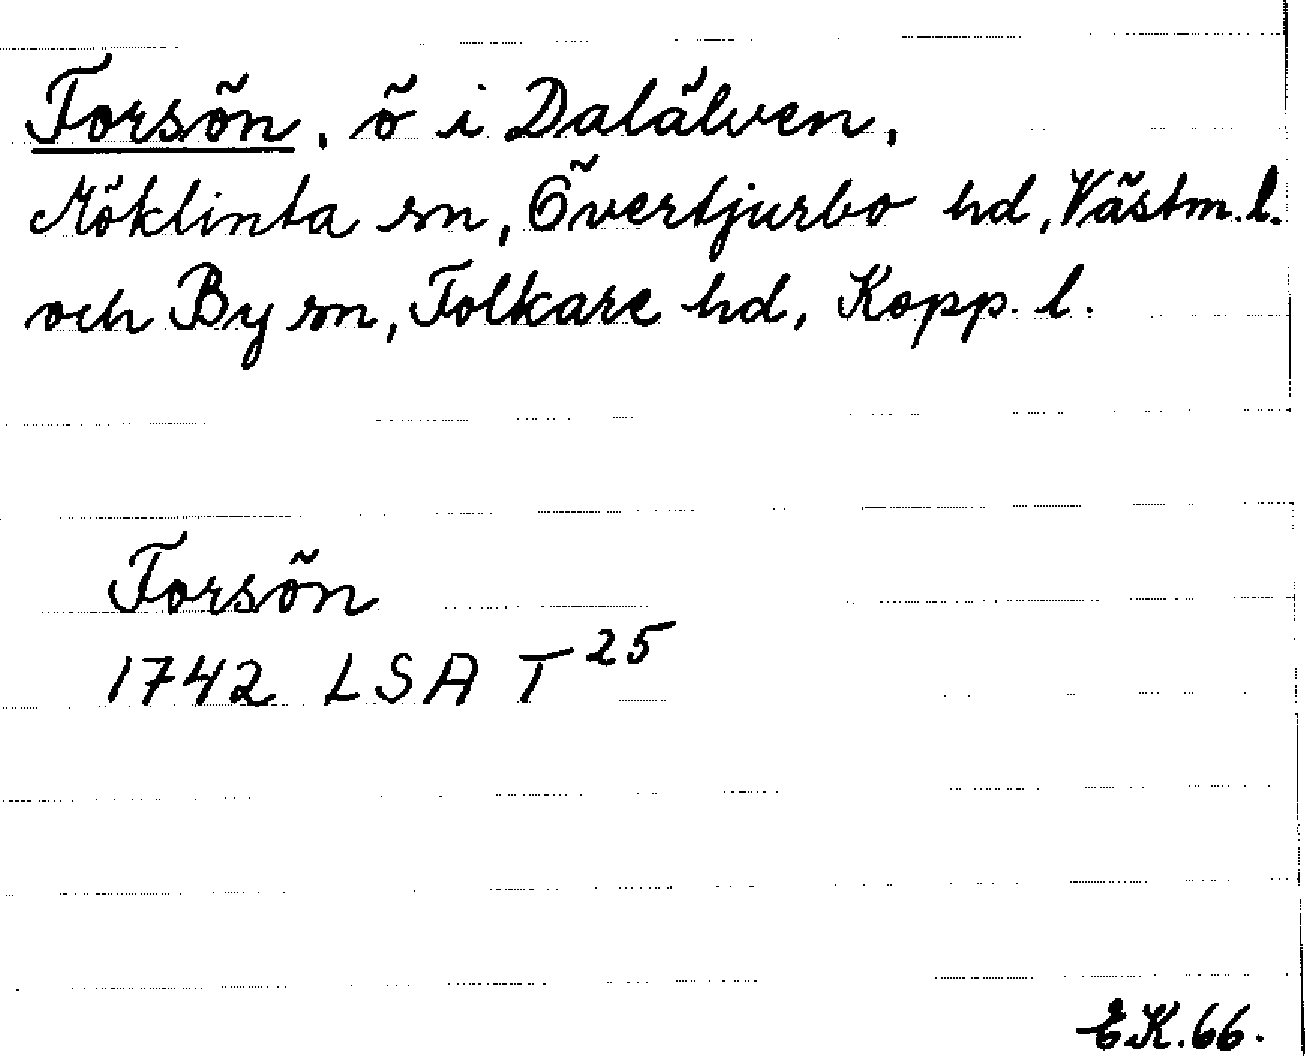 Forsön, ö i Dalälven,
Möklinta sn, Övertjurbo hd, Västm. l.
och By sn, Folkare hd, Kopp. l.
Forsön
1742 LSA T 25
EK.66.